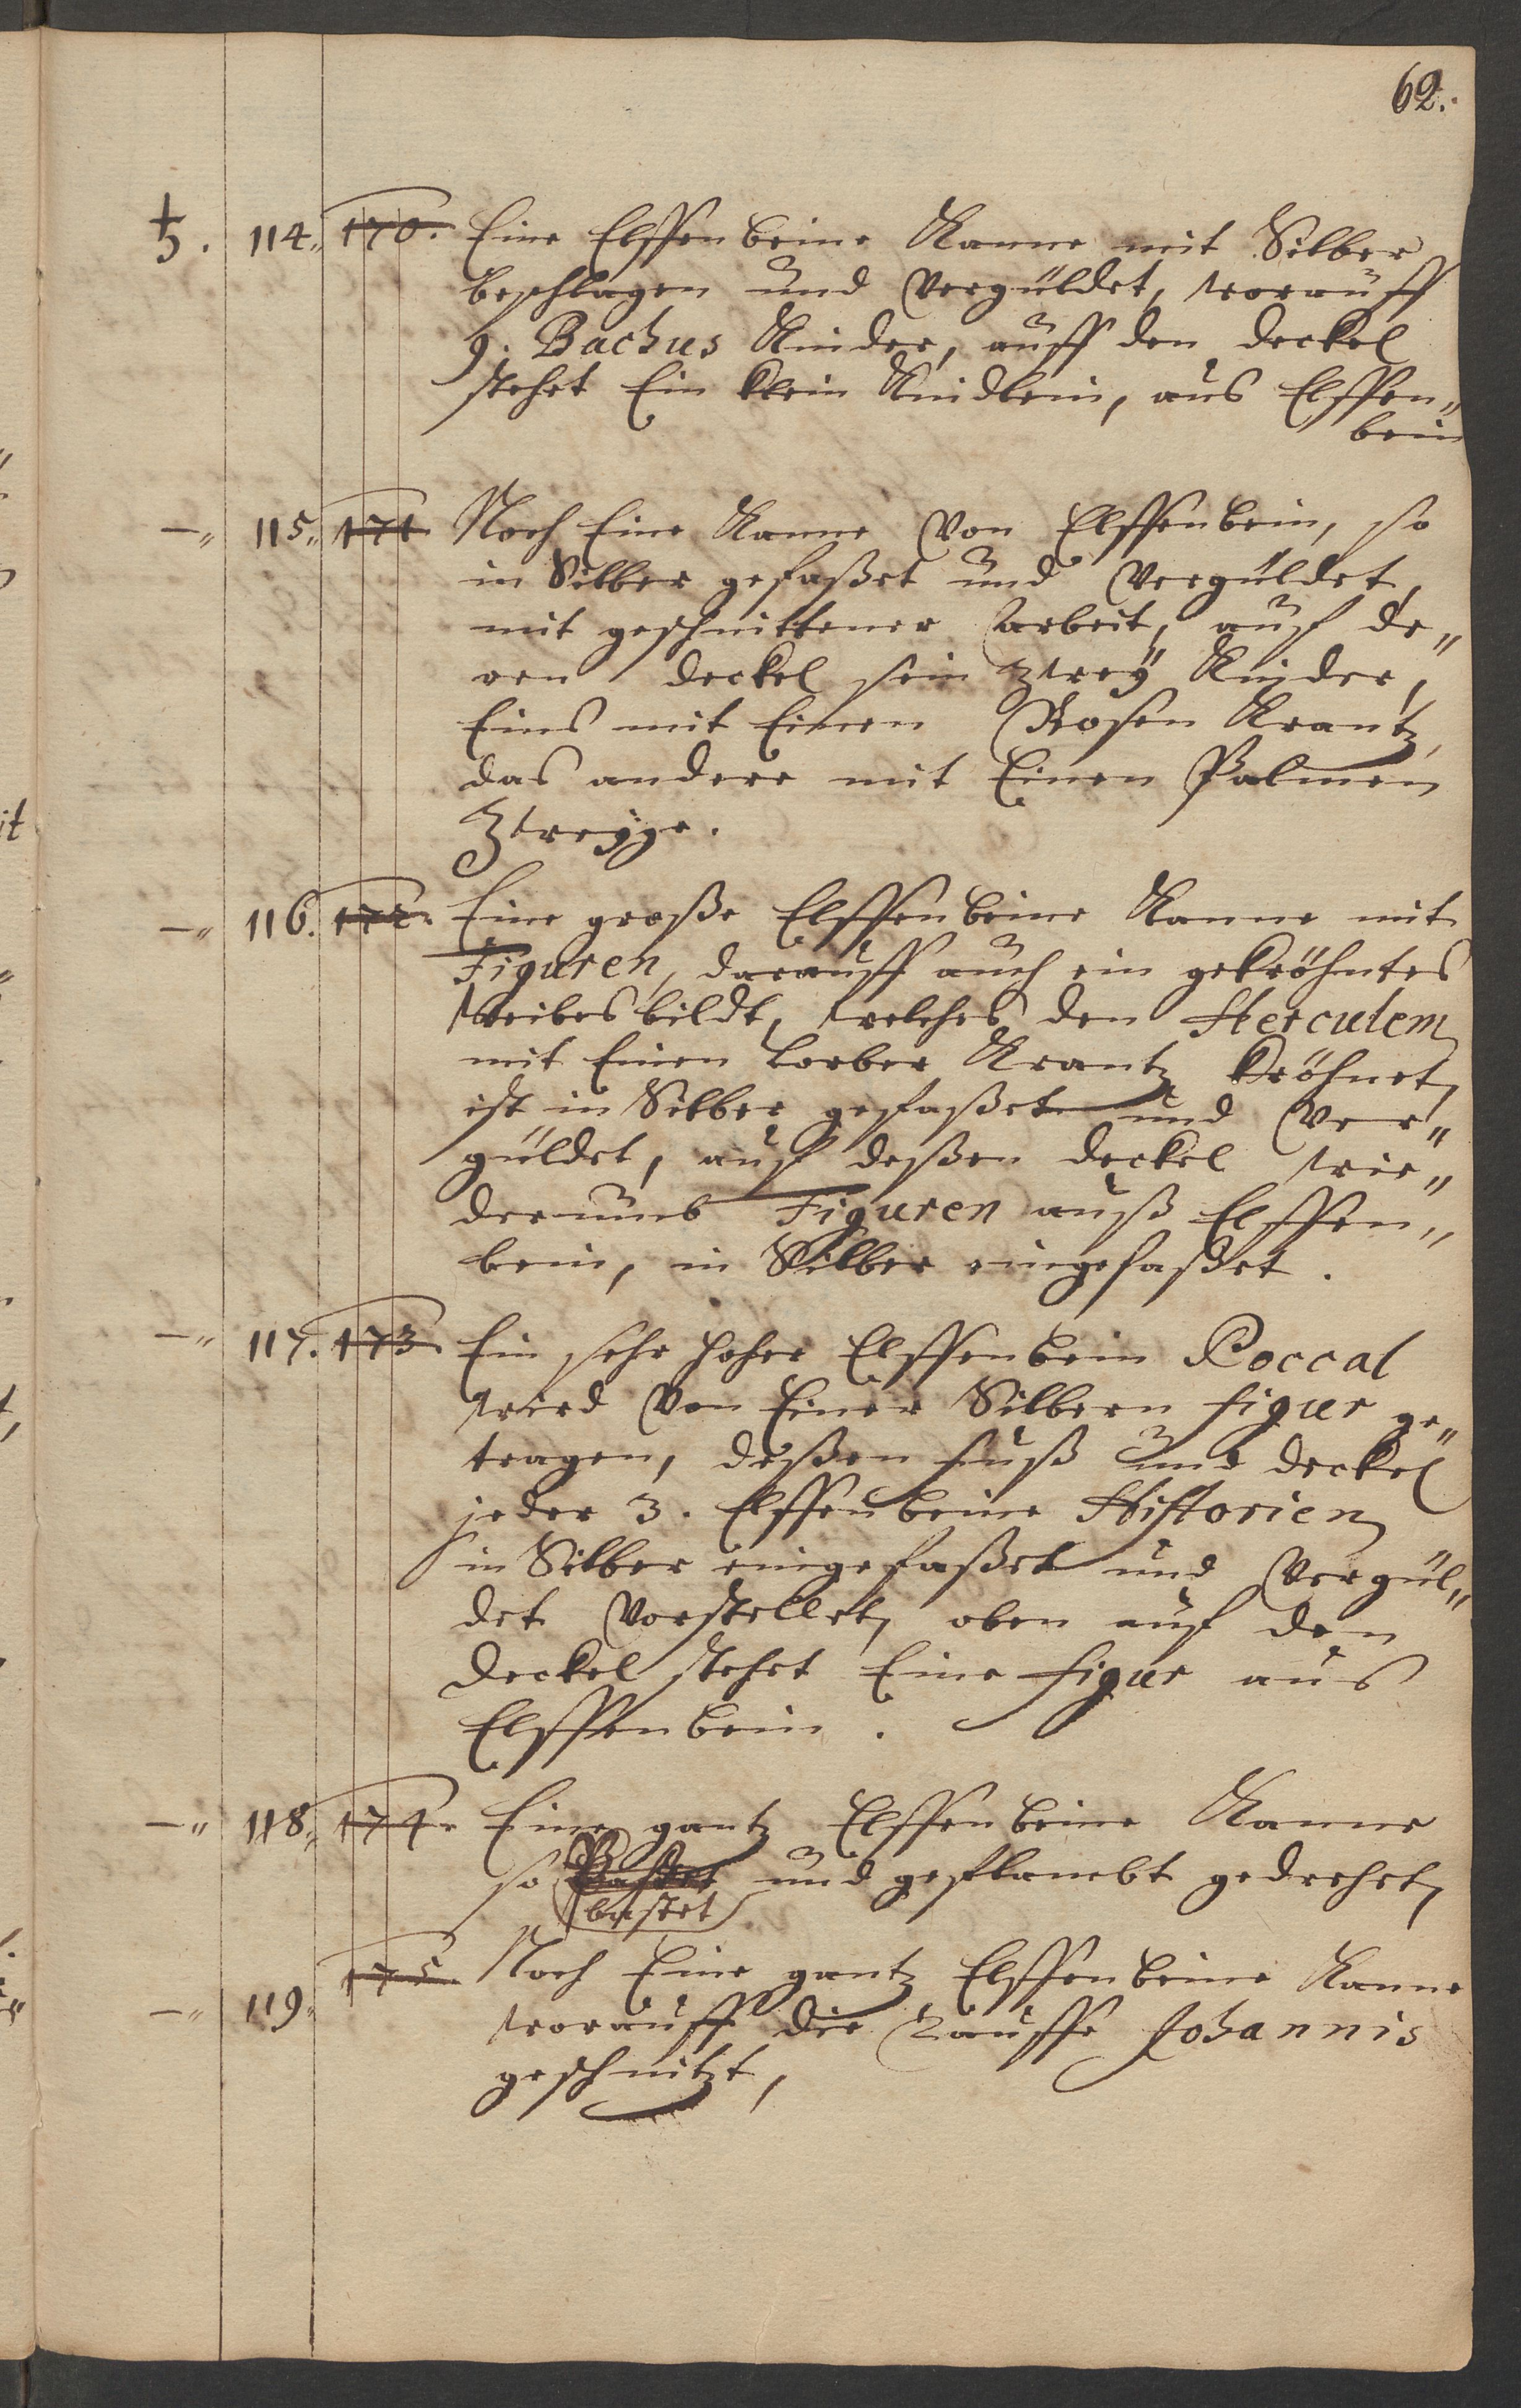 62.
5. 114. 170. Eine Elffenbeine Kanne mit Silber
beschlagen und Vergüldet, worauff
9. Bachus Kinder, auff den deckel
stehet Ein klein Kindlein, aus Elffen„
bein
—„ 115„ 171. Noch Eine Kanne Von Elffenbein, so
in Silber gefaßet und Vergüldet,
mit geschnittener Arbeit, auf de„
ren deckel sein zwey Kinder,
Eins mit Einen Rosen Krantz,
das andere mit Einen Palmen
Zweyge.
—„ 116. 172. Eine große Elffenbeine Kanne mit
Figuren, darauff auch ein gekröhntes
Weibesbildt, welches den Herculem
mit Einen Lorber Krantz kröhnet,
ist in Silber gefaßet und Ver„
güldet, auf deßen deckel wie„
derumb Figuren auß Elffen„
bein, in Silber eingefaßet.
—„ 117. 173. Ein sehr hoher Elffenbein Poccal
wird Von Einer Silbern figur ge„
tragen, deßen fuß und deckel
jeder 3. Elffenbeine Historien
in Silber eingefaßet und Vergül„
det Vorstellet, oben auf den
deckel stehet Eine figur aus
Elffenbein.
—„ 118„ 174. Eine gantz Elffenbeine Kanne
so und geflambt gedrehet,
bastet
175. Noch Eine gantz Elffenbeine Kanne
—„ 119„ worauff die Tauffe Johannis
geschnitzt,